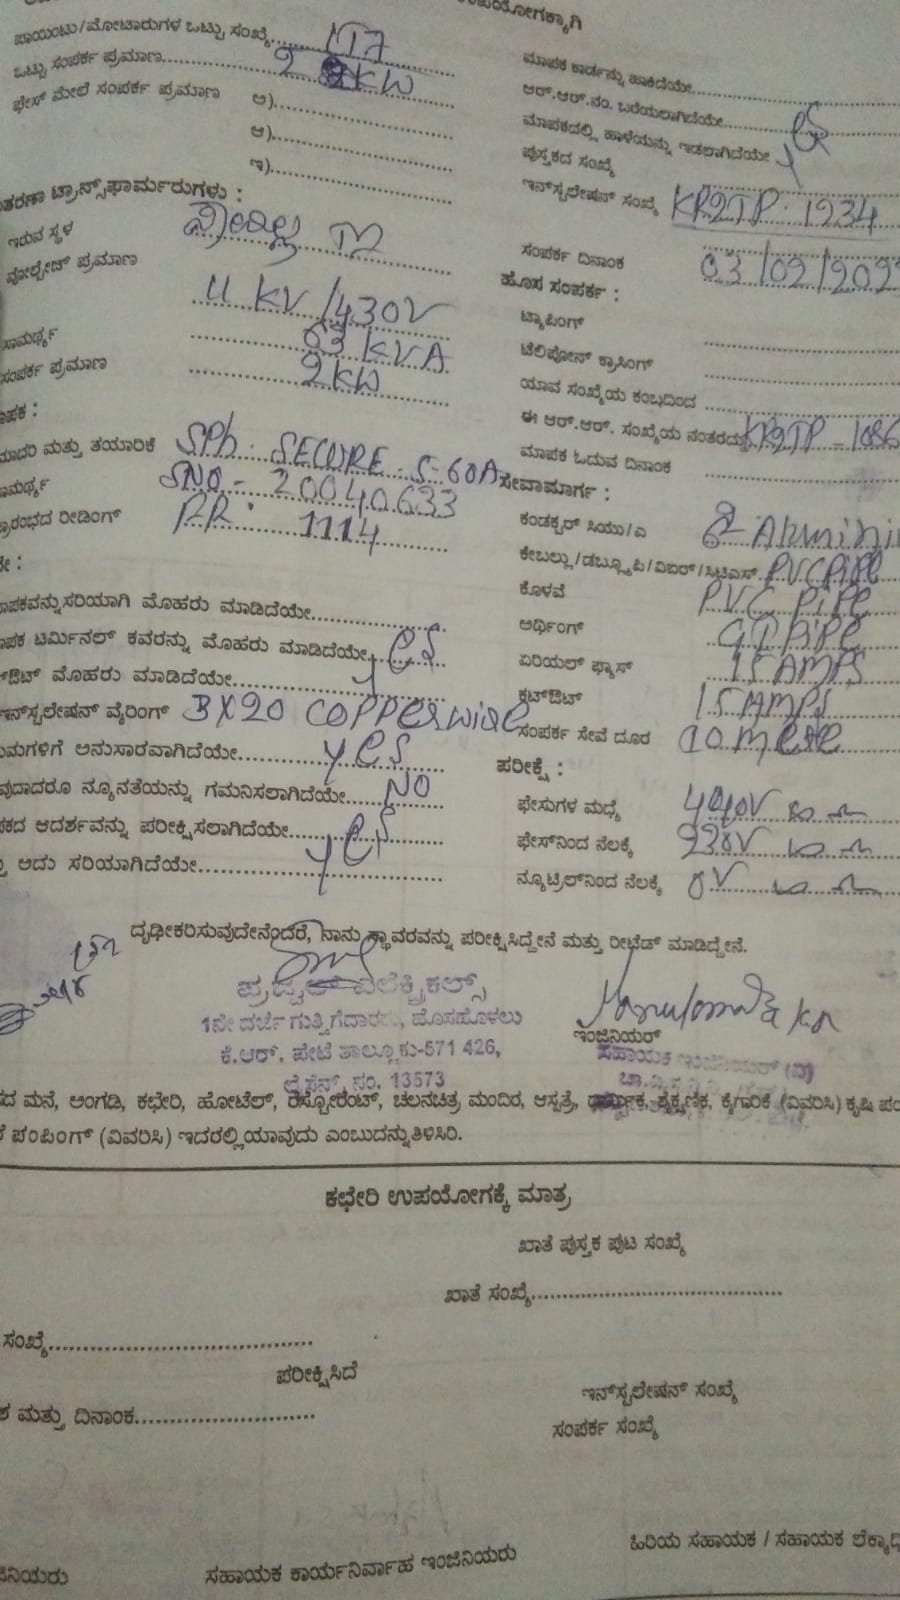 ಉಪಯೋಗಕ್ಕಾಗಿ
ಪಾಯಿಂಟು/ಮೋಟಾರುಗಳ ಒಟ್ಟು ಸಂಖ್ಯೆ
ಒಟ್ಟು ಸಂಪರ್ಕ ಪ್ರಮಾಣ 2 KW
ಫೇಸ್ ಮೇಲೆ ಸಂಪರ್ಕ ಪ್ರಮಾಣ ಅ)
ಆ)
ಇ)
ಟ್ರಾನ್ಸ್‌ಫಾರ್ಮರುಗಳು :
ಇರುವ ಸ್ಥಳ
ವೋಲ್ಟೇಜ್ ಪ್ರಮಾಣ 11 KV/430V
ಸಾಮರ್ಥ್ಯ 63 KVA
ಸಂಪರ್ಕ ಪ್ರಮಾಣ 2KW
ಮಾದರಿ ಮತ್ತು ತಯಾರಿಕೆ SPh. SECURE - 5-60A
SNO - 20040633
ರೀಡಿಂಗ್ RR: 1114
ಸರಿಯಾಗಿ ಮೊಹರು ಮಾಡಿದೆಯೇ
ಟರ್ಮಿನಲ್ ಕವರನ್ನು ಮೊಹರು ಮಾಡಿದೆಯೇ yes
ಮೊಹರು ಮಾಡಿದೆಯೇ
ಇನ್‌ಸ್ಟಲೇಷನ್ ವೈರಿಂಗ್ 3X20 COPPER wire
ಅನುಸಾರವಾಗಿದೆಯೇ yes
ನ್ಯೂನತೆಯನ್ನು ಗಮನಿಸಲಾಗಿದೆಯೇ NO
ಆದರ್ಶವನ್ನು ಪರೀಕ್ಷಿಸಲಾಗಿದೆಯೇ
ಅದು ಸರಿಯಾಗಿದೆಯೇ yes
ಮಾಪಕ ಕಾರ್ಡನ್ನು ಹಾಕಿದೆಯೇ
ಆರ್.ಆರ್.ನಂ. ಬರೆಯಲಾಗಿದೆಯೇ
ಮಾಪಕದಲ್ಲಿ ಹಾಳೆಯನ್ನು ಇಡಲಾಗಿದೆಯೇ yes
ಪುಸ್ತಕದ ಸಂಖ್ಯೆ
ಇನ್‌ಸ್ಟಲೇಷನ್ ಸಂಖ್ಯೆ KR2TP. 1234
ಸಂಪರ್ಕ ದಿನಾಂಕ 03/02/202
ಹೊಸ ಸಂಪರ್ಕ :
ಟ್ಯಾಪಿಂಗ್
ಟೆಲಿಪೋನ್ ಕ್ರಾಸಿಂಗ್
ಯಾವ ಸಂಖ್ಯೆಯ ಕಂಬದಿಂದ
ಈ ಆರ್.ಆರ್. ಸಂಖ್ಯೆಯ ನಂತರದ್ದು KR2TP - 1086
ಮಾಪಕ ಓದುವ ದಿನಾಂಕ
ಸೇವಾಮಾರ್ಗ :
ಕಂಡಕ್ಟರ್ ಸಿಯು/ಎ
ಕೇಬಲ್ಲು/ಡಬ್ಲ್ಯೂಪಿ/ವಿಐರ್/ಸಿಟಿಎಸ್ PVC Pipe
ಕೊಳವೆ PVC Pipe
ಅರ್ಥಿಂಗ್ GI Pipe
ಏರಿಯಲ್ ಫ್ಯೂಸ್ 15 AMPS
ಕಟ್‌ಔಟ್ 15 AMPS
ಸಂಪರ್ಕ ಸೇವೆ ದೂರ
ಪರೀಕ್ಷೆ :
ಫೇಸುಗಳ ಮಧ್ಯೆ 440V
ಫೇಸ್‌ನಿಂದ ನೆಲಕ್ಕೆ 230V
ನ್ಯೂಟ್ರಲ್‌ನಿಂದ ನೆಲಕ್ಕೆ 0V
ದೃಢೀಕರಿಸುವುದೇನೆಂದರೆ, ನಾನು ಸ್ಥಾವರವನ್ನು ಪರೀಕ್ಷಿಸಿದ್ದೇನೆ ಮತ್ತು ರೀಟೆಡ್ ಮಾಡಿದ್ದೇನೆ.
ಪ್ರಜ್ವಲ್ ಎಲೆಕ್ಟ್ರಿಕಲ್ಸ್
1ನೇ ದರ್ಜೆ ಗುತ್ತಿಗೆದಾರರು, ಹೊಸಹೊಳಲು
ಕೆ.ಆರ್. ಪೇಟೆ ತಾಲ್ಲೂಕು-571 426,
ಲೈಸೆನ್ಸ್ ನಂ. 13573
ಇಂಜಿನಿಯರ್
ಸಹಾಯಕ ಇಂಜಿನಿಯರ್ (ವಿ)
ಮನೆ, ಅಂಗಡಿ, ಕಛೇರಿ, ಹೋಟೆಲ್, ರೆಸ್ಟೋರೆಂಟ್, ಚಲನಚಿತ್ರ ಮಂದಿರ, ಆಸ್ಪತ್ರೆ, ಧಾರ್ಮಿಕ, ಶೈಕ್ಷಣಿಕ, ಕೈಗಾರಿಕೆ (ವಿವರಿಸಿ) ಕೃಷಿ
ಪಂಪಿಂಗ್ (ವಿವರಿಸಿ) ಇದರಲ್ಲಿ ಯಾವುದು ಎಂಬುದನ್ನು ತಿಳಿಸಿರಿ.
ಕಛೇರಿ ಉಪಯೋಗಕ್ಕೆ ಮಾತ್ರ
ಖಾತೆ ಪುಸ್ತಕ ಪುಟ ಸಂಖ್ಯೆ
ಖಾತೆ ಸಂಖ್ಯೆ
ಸಂಖ್ಯೆ
ಪರೀಕ್ಷಿಸಿದೆ
ಇನ್‌ಸ್ಟಲೇಷನ್ ಸಂಖ್ಯೆ
ಮತ್ತು ದಿನಾಂಕ
ಸಂಪರ್ಕ ಸಂಖ್ಯೆ
ಹಿರಿಯ ಸಹಾಯಕ / ಸಹಾಯಕ
ಸಹಾಯಕ ಕಾರ್ಯನಿರ್ವಾಹ ಇಂಜಿನಿಯರು